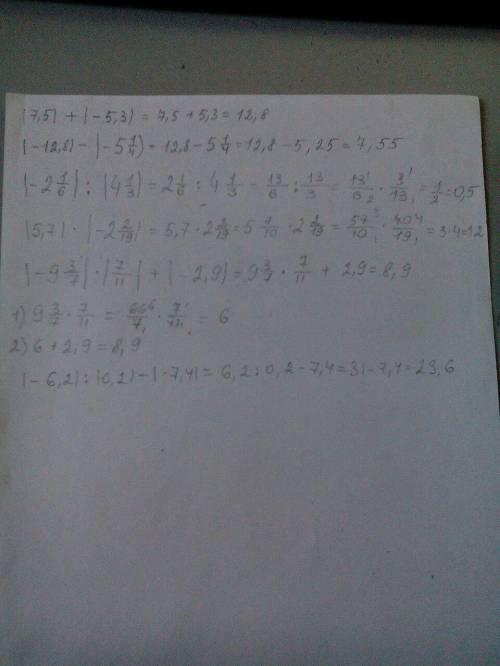 |7,5| + |-5,3| = 7,5 + 5,3 = 12,8
|-12,8| - |-5 1/4| = 12,8 - 5 1/4 = 12,8 - 5,25 = 7,55
|-2 1/6| : |4 1/3| = 2 1/6 : 4 1/3 = 13/6 : 13/3 = 13/6 · 3/13 = 1/2 = 0,5
|5,7| · |-2 2/19| = 5,7 · 2 2/19 = 5 7/10 · 2 2/19 = 57/10 · 40/19 = 3·4=12
|-9 3/7| · |7/11| + |-2,9| = 9 3/7 · 7/11 + 2,9 = 8,9
1) 9 3/7 · 7/11 = 66/7 · 7/11 = 6
2) 6 + 2,9 = 8,9
|-6,2| : |0,2| - |-7,4| = 6,2 : 0,2 - 7,4 = 31 - 7,4 = 23,6